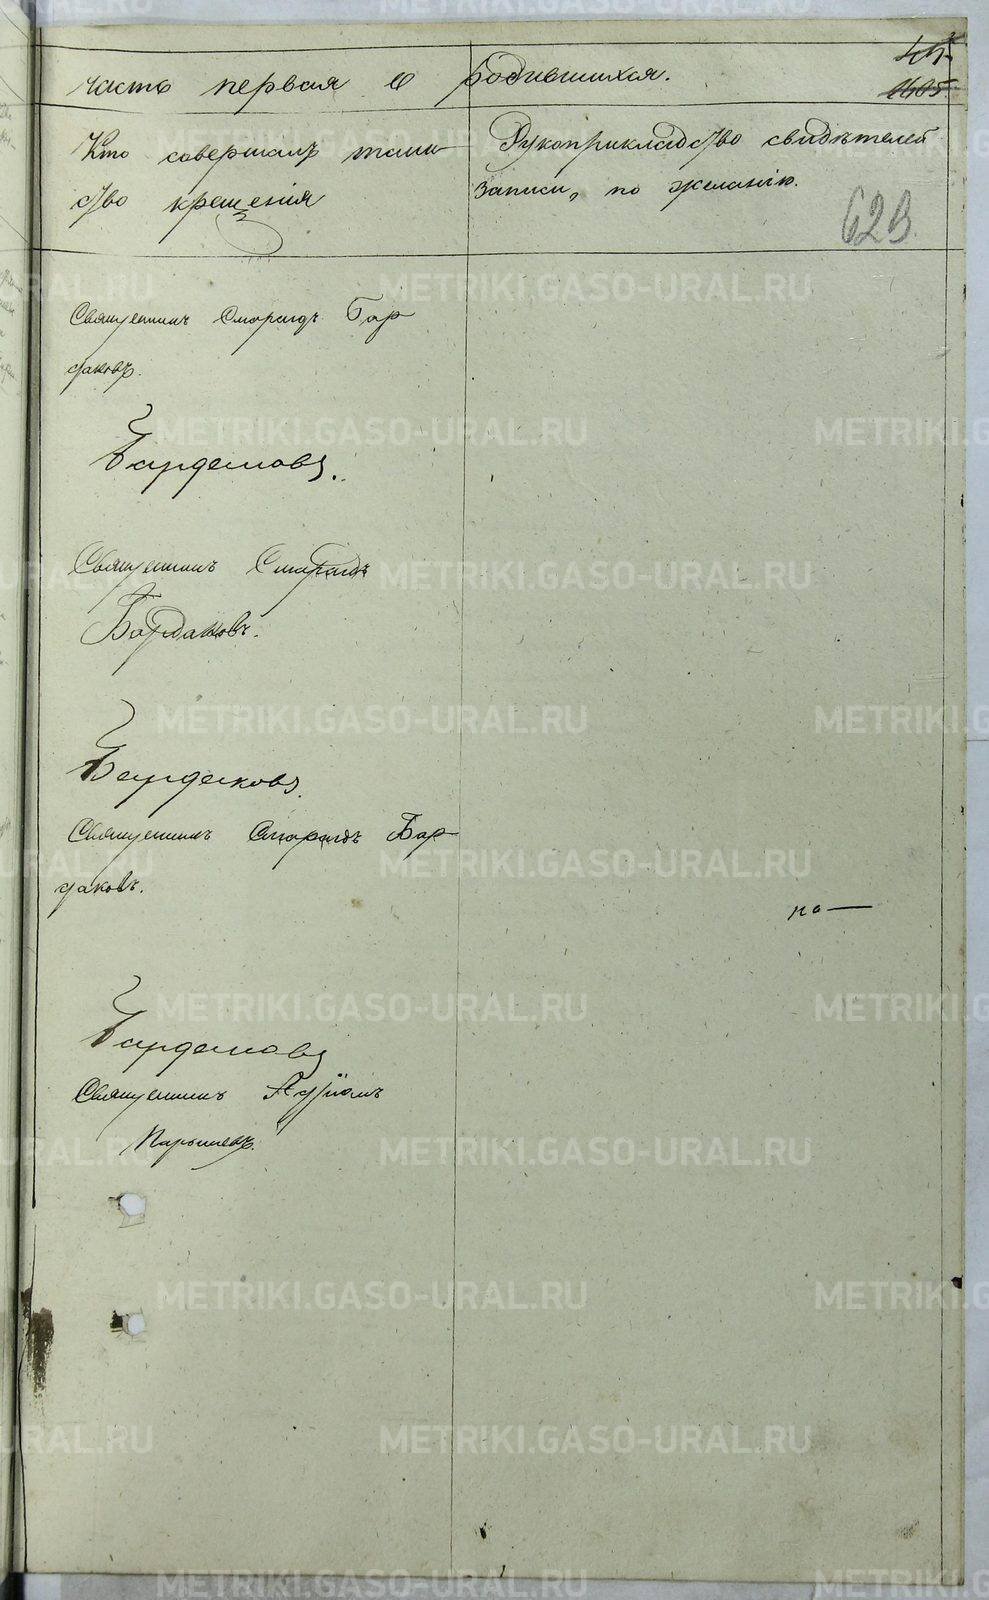 часть первая о родившихся.
Кто совершалъ таин
ство крещенія
Рукоприкладство свидѣтелей
записи, по желанію.
629.
Священникъ Смарагдъ Бар
даковъ.
Бардаковъ.
Священникъ Смарагдъ
Бардаковъ.
Бардаковъ.
Священникъ Смарагдъ Бар
даковъ.
по—
Бардаковъ
Священникъ
METRIKI.GASO-URAL.RU